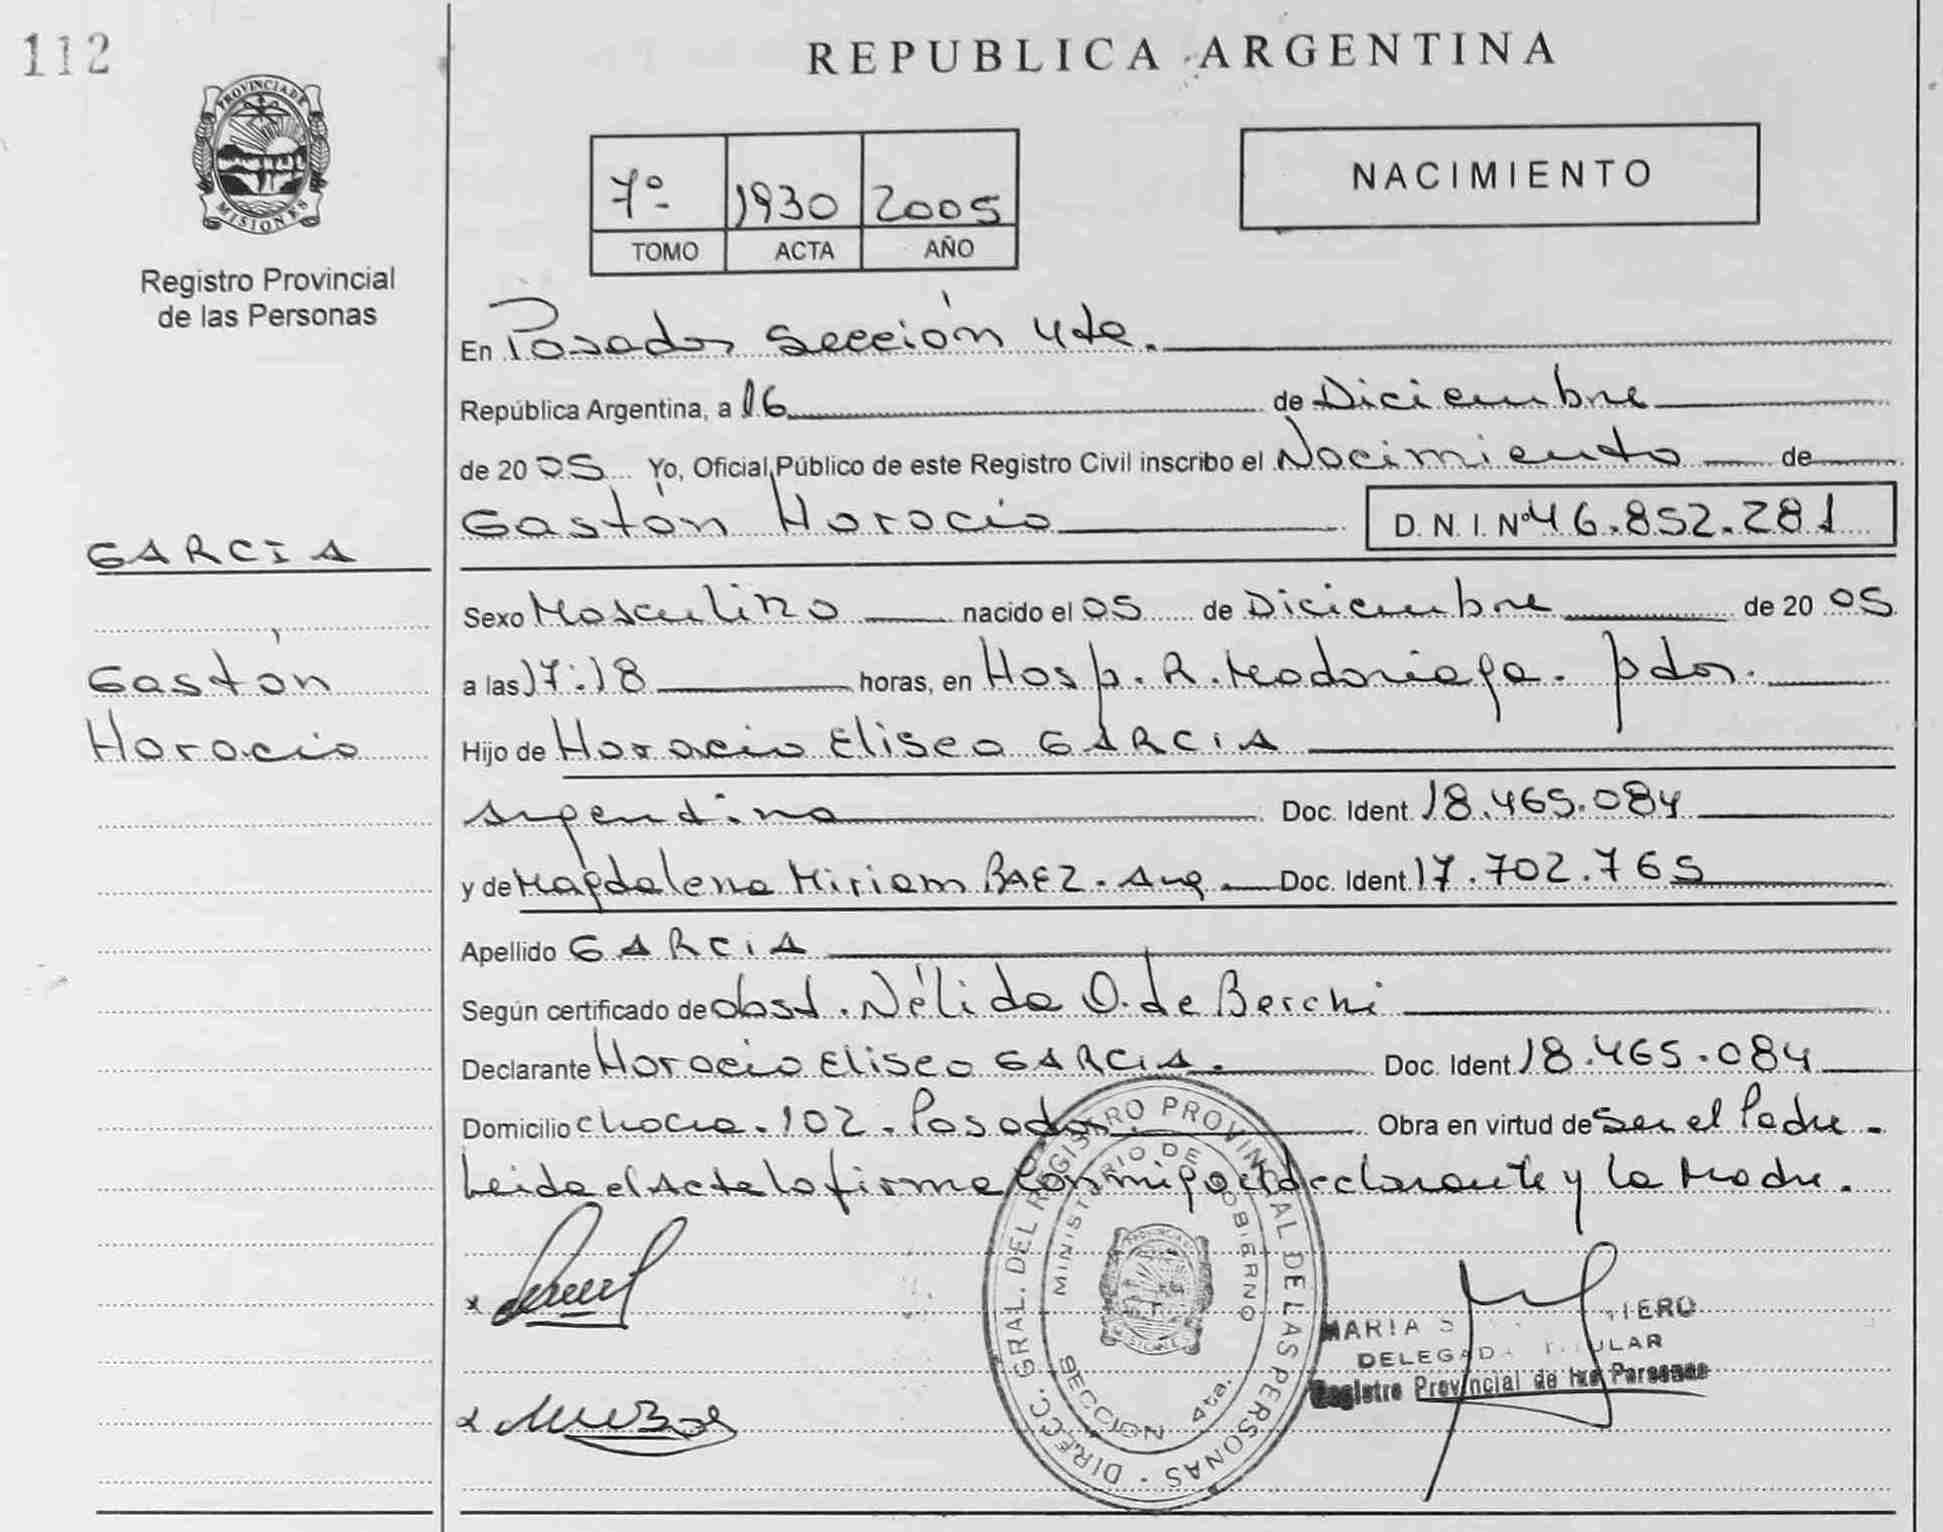 112
REPUBLICA ARGENTINA
PROVINCIA DE
MISIONES
Registro Provincial
de las Personas
7º 1930 2005
TOMO ACTA AÑO
NACIMIENTO
En Posadas Sección 4ta.
República Argentina, a 16 de Diciembre
de 2005 Yo, Oficial Público de este Registro Civil inscribo el Nacimiento de
Gastón Horacio D.N.I. Nº 46.852.281
GARCIA
Gastón
Horacio
Sexo Masculino nacido el 05 de Diciembre de 2005
a las 17:18 horas, en Hosp. R. Madariaga. Pdas.
Hijo de Horacio Eliseo GARCIA
Argentina Doc. Ident. 18.465.084
y de Magdalena Miriam BAEZ. Arg. Doc. Ident. 17.702.765
Apellido GARCIA
Según certificado de obst. Nélida O. de Berchi
Declarante Horacio Eliseo GARCIA. Doc. Ident. 18.465.084
Domicilio chacra. 102. Posadas. Obra en virtud de ser el Padre.
Leida el Acta la firma conmigo el declarante y la Madre.
DIRECC. GRAL. DEL REGISTRO PROVINCIAL DE LAS PERSONAS
MINISTERIO DE GOBIERNO
SECCION 4ta.
MARIA
DELEGADA TITULAR
Registro Provincial de las Personas